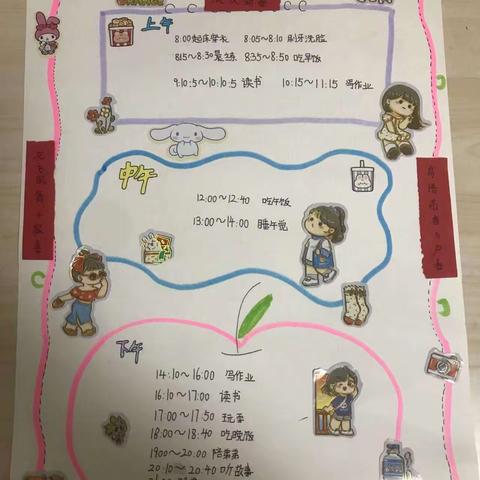 上午
8:00起床穿衣 8:05～8:10 刷牙洗脸
8:15～8:30晨练 8:35～8:50 吃早饭
9:10:5～10:10:5 读书 10:15～11:15 写作业
中午
12:00～12:40 吃午饭
13:00～14:00 睡午觉
下午
14:10～16:00 写作业
16:10～17:00 读书
17:00～17:50 玩耍
18:00～18:40 吃晚饭
19:00～20:00 陪弟弟
20:10～20:40 听故事